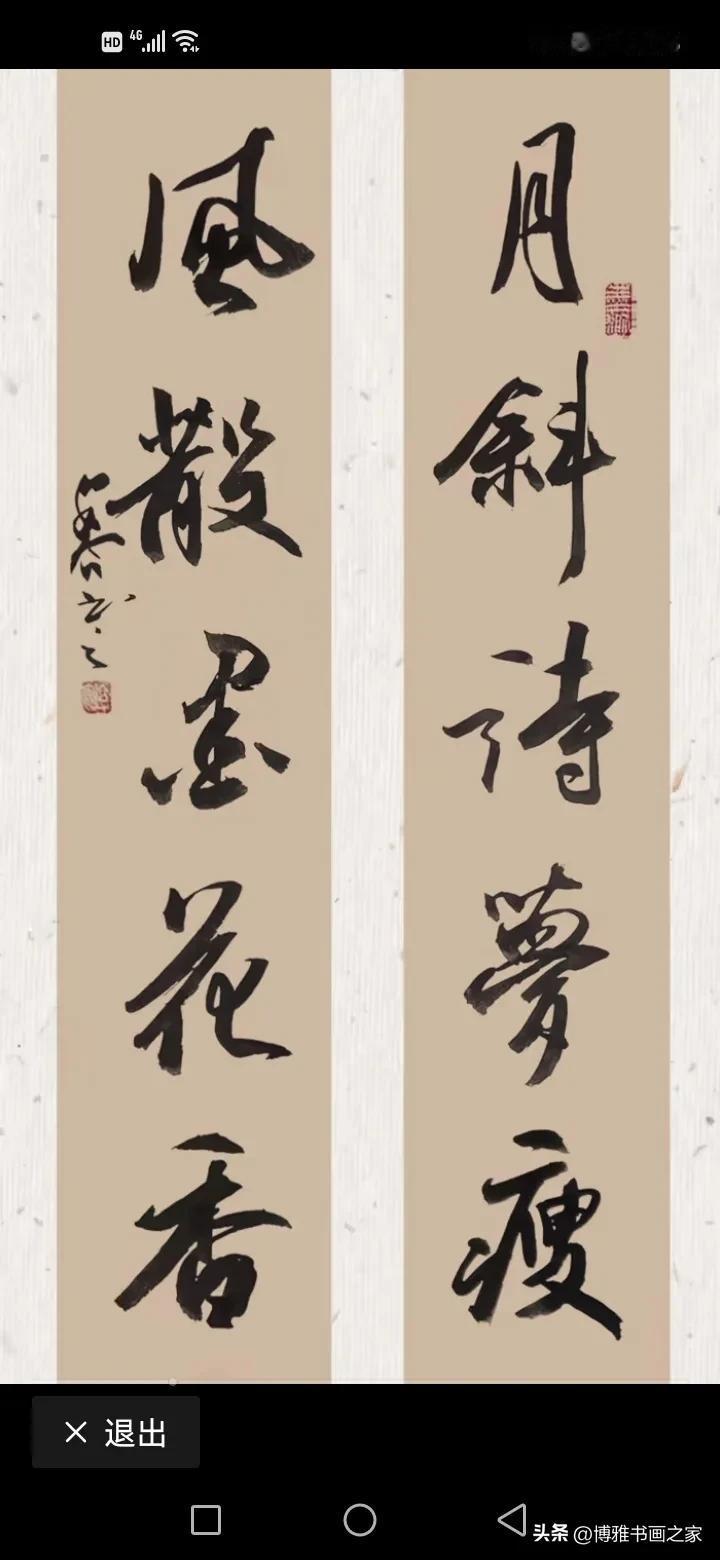 HD 4G
月斜詩夢瘦
風散墨花香
退出
头条 @博雅书画之家